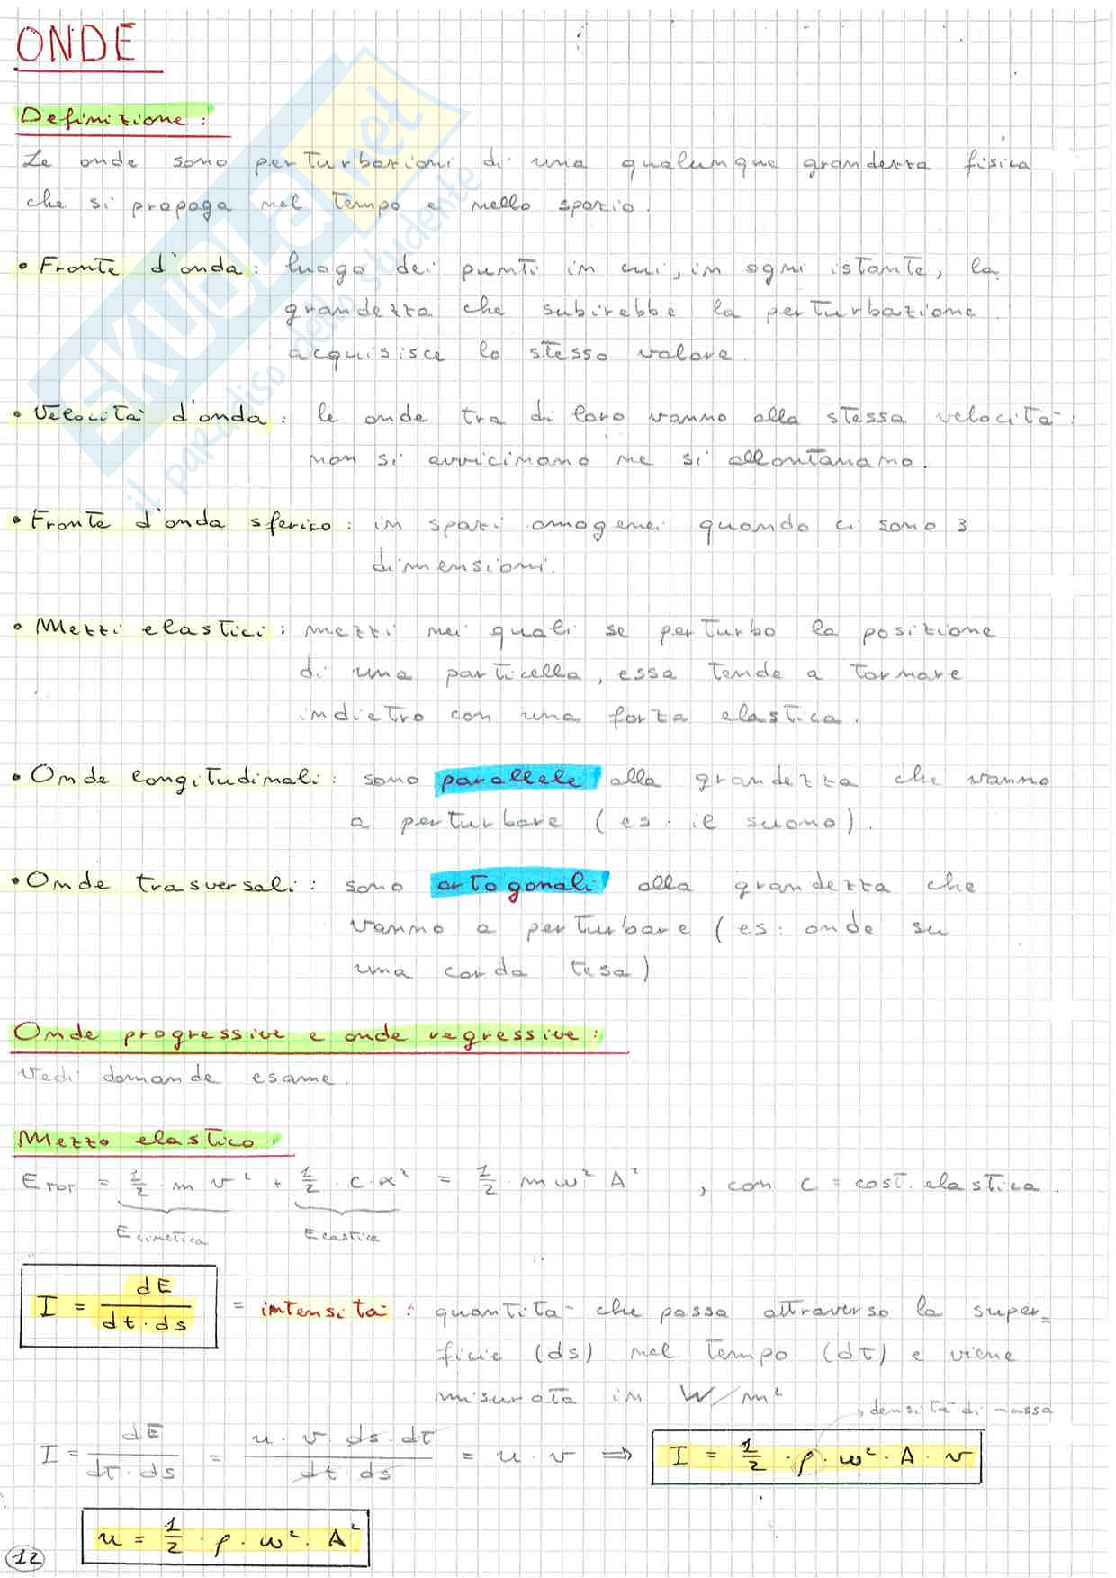 ONDE
Definizione:
Le onde sono perturbazioni di una qualunque grandezza fisica
che si propaga nel tempo e nello spazio.
• Fronte d'onda: luogo dei punti in cui, in ogni istante, la
grandezza che subirebbe la perturbazione
acquisisce lo stesso valore.
• Velocità d'onda: le onde tra di loro vanno alla stessa velocità:
non si avvicinano ne si allontanano.
• Fronte d'onda sferico: in spazi omogenei quando ci sono 3
dimensioni.
• Mezzi elastici: mezzi nei quali se perturbo la posizione
di una particella, essa tende a tornare
indietro con una forza elastica.
• Onde longitudinali: sono parallele alla grandezza che vanno
a perturbare (es. il suono).
• Onde trasversali: sono ortogonali alla grandezza che
vanno a perturbare (es: onde su
una corda tesa)
Onde progressive e onde regressive:
Vedi domande esame.
Mezzo elastico
E_TOT = 1/2 · m v² + 1/2 · c · x² = 1/2 · m ω² A² , con c = cost. elastica.
E cinetica E elastica
I = dE / dt · ds = intensità: quantità che passa attraverso la super=
ficie (ds) nel tempo (dt) e viene
misurata in W/m²
densità di massa
I = dE / dt · ds = u · v · ds · dt / dt ds = u · v ⟹ I = 1/2 · ρ · ω² · A · v
u = 1/2 · ρ · ω² · A²
12
SKUOLA.net
il paradiso dello studente